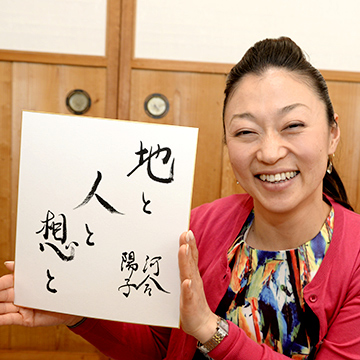 地と
人と
想と
河合
陽子